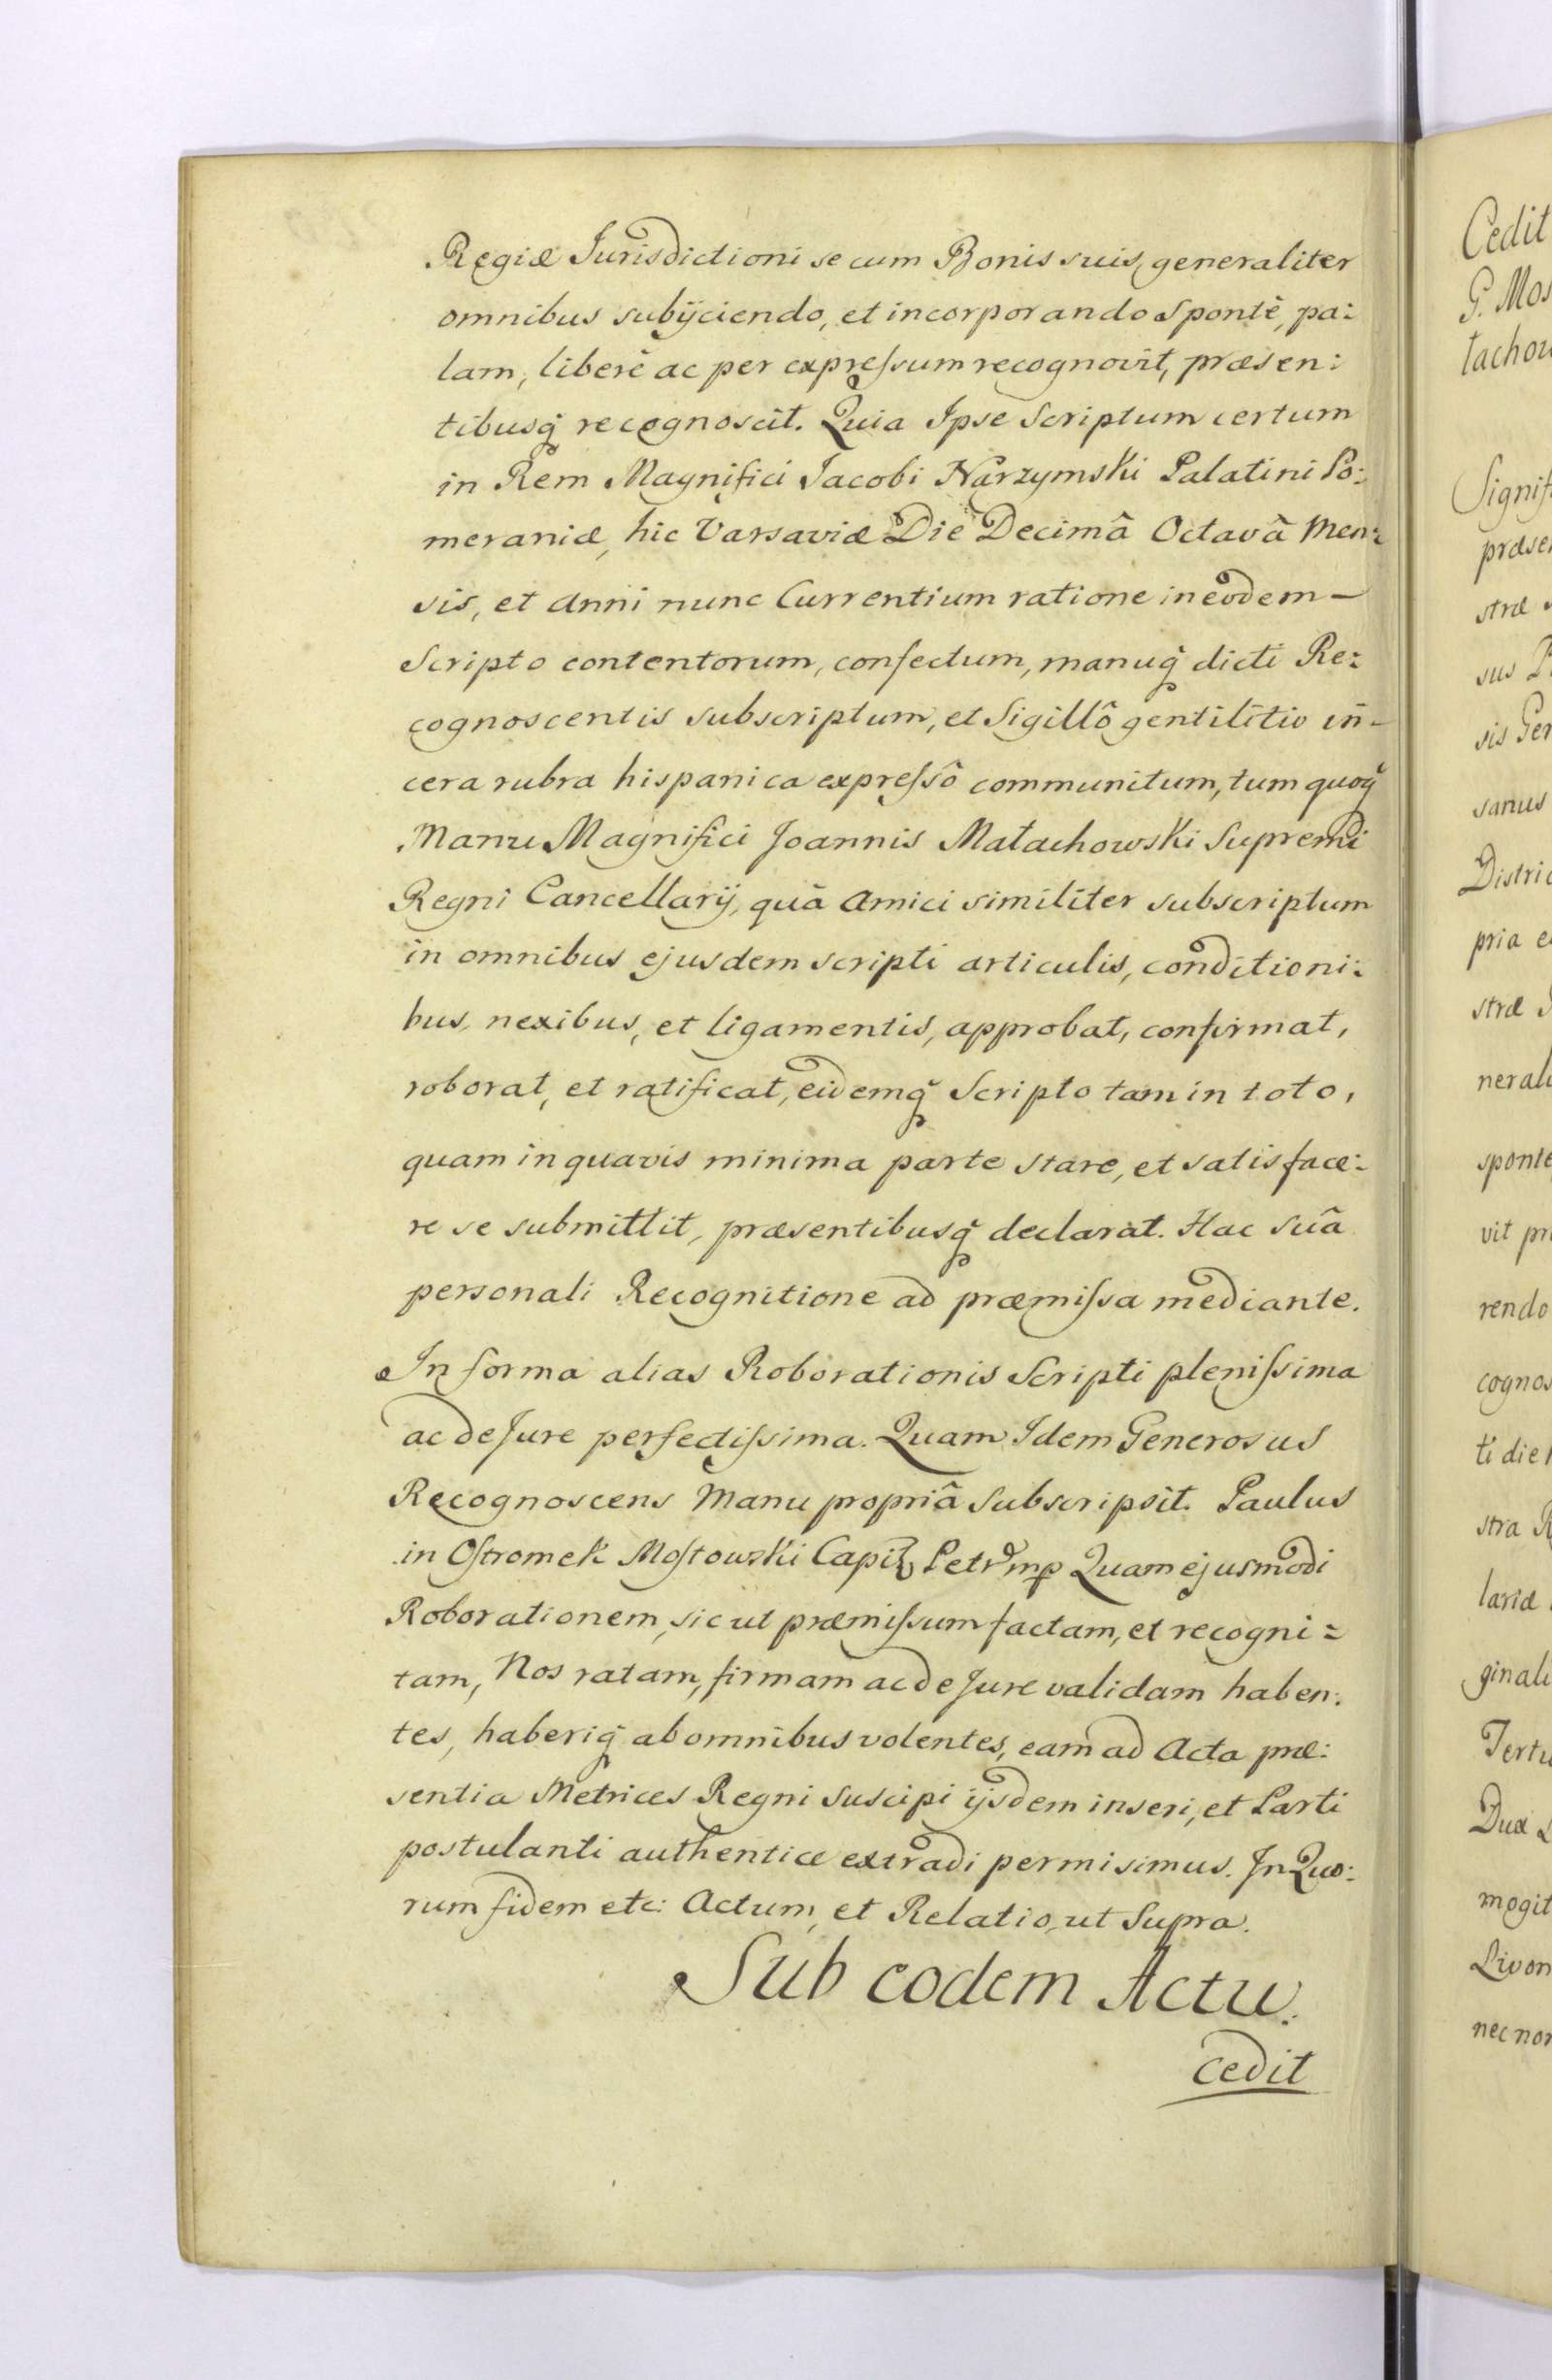 Regiæ Jurisdictioni se cum Bonis suis, generaliter
omnibus subÿciendo, et incorporando Spontè, pa:
lam, liberè ac per expreſsum recognovit, præsen:
tibusq̃ recognoscit. Quia Ipse Scriptum certum
in Rem Magnifici Jacobi Narzymski Palatini Po:
meraniæ, hic Varsaviæ Die Decimâ Octavâ Men:
sis, et Anni nunc Currentium ratione in eodem —
Scripto contentorum, confectum, manuq̃ dicti Re:
cognoscentis subscriptum, et Sigillô gentilitio in —
cera rubra hispanica expreſsô communitum, tum quoq̃
Manu Magnifici Joannis Małachowski Supremi
Regni Cancellarÿ, quà Amici similiter subscriptum
in omnibus ejusdem scripti articulis, conditioni:
bus, nexibus, et ligamentis, approbat, confirmat,
roborat, et ratificat, eidemq̃ Scripto tam in toto,
quam in quavis minima parte stare, et satisface:
re se submittit, præsentibusq̃ declarat. Hac Suâ
personali Recognitione ad præmiſsa mediante.
In forma alias Roborationis Scripti pleniſsima
ac de Jure perfectiſsima. Quam Idem Generosus
Recognoscens Manu propriâ Subscripsit. Paulus
in Oſtromek Moſtowski Capit Petr mp Quam ejusmodi
Roborationem, sic ut præmiſsum factam, et recogni:
tam, Nos ratam, firmam ac de Jure validam haben:
tes, haberiq̃ ab omnibus volentes, eam ad Acta præ:
sentia Metrices Regni Suscipi ÿsdem inseri, et Parti
postulanti authentice extradi permisimus. In Quo:
rum fidem etc: Actum, et Relatio, ut Supra.
Sub eodem Actu.
Cedit
Cedit
G. Mos
łachow
Signif
præse
stræ
sus P
sis Gen
sanus
Distric
pria e
stræ
nerali
sponte
vit pr
rendo
cognos
ti die
stra R
lariæ
ginali
Tertu
Dux
mogit
Livon
nec non